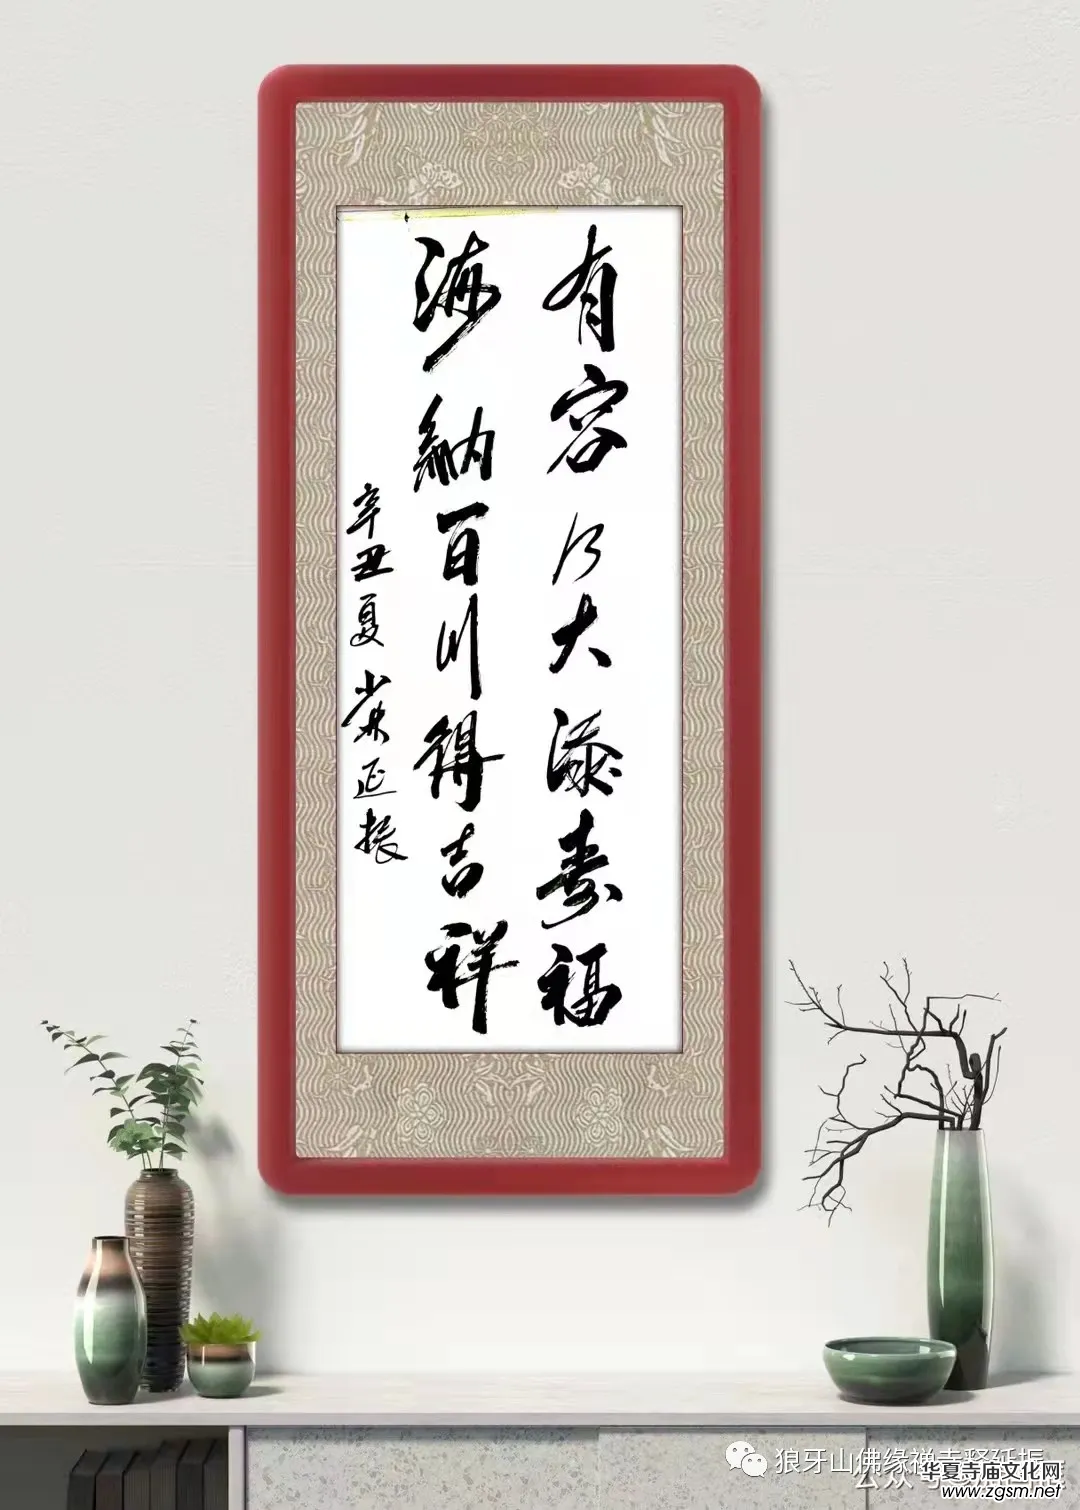 有容乃大添寿福
海納百川得吉祥
辛丑夏 少林延振
狼牙山佛缘禅寺释延振
公众号
华夏寺庙文化网
www.zgsm.net